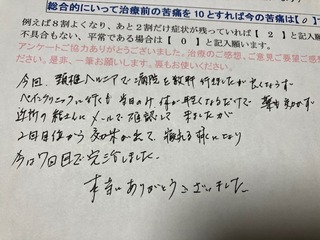 総合的にいって治療前の苦痛を10とすれば今の苦痛は【 0 】
例えば8割よくなり、あと2割だけ症状が残っていれば【 2 】と記入
不具合もない、平常である場合は【 0 】と記入願います。
アンケートご協力ありがとうございました。治療のご感想、ご意見ご要望ご感
ください。是非、一筆お願いします。裏もお使いください。
今回、頸椎ヘルニアで病院も数軒 行きましたが良くならず
ペインクリニックに行くも 当日のみ 体が軽くなるだけで 薬も効かず
近所の 先生に メールで 確認して 来ましたが
2回目位から 効果が出て、寝れる様になり
今日7回目で完治しました。
本当にありがとうございました